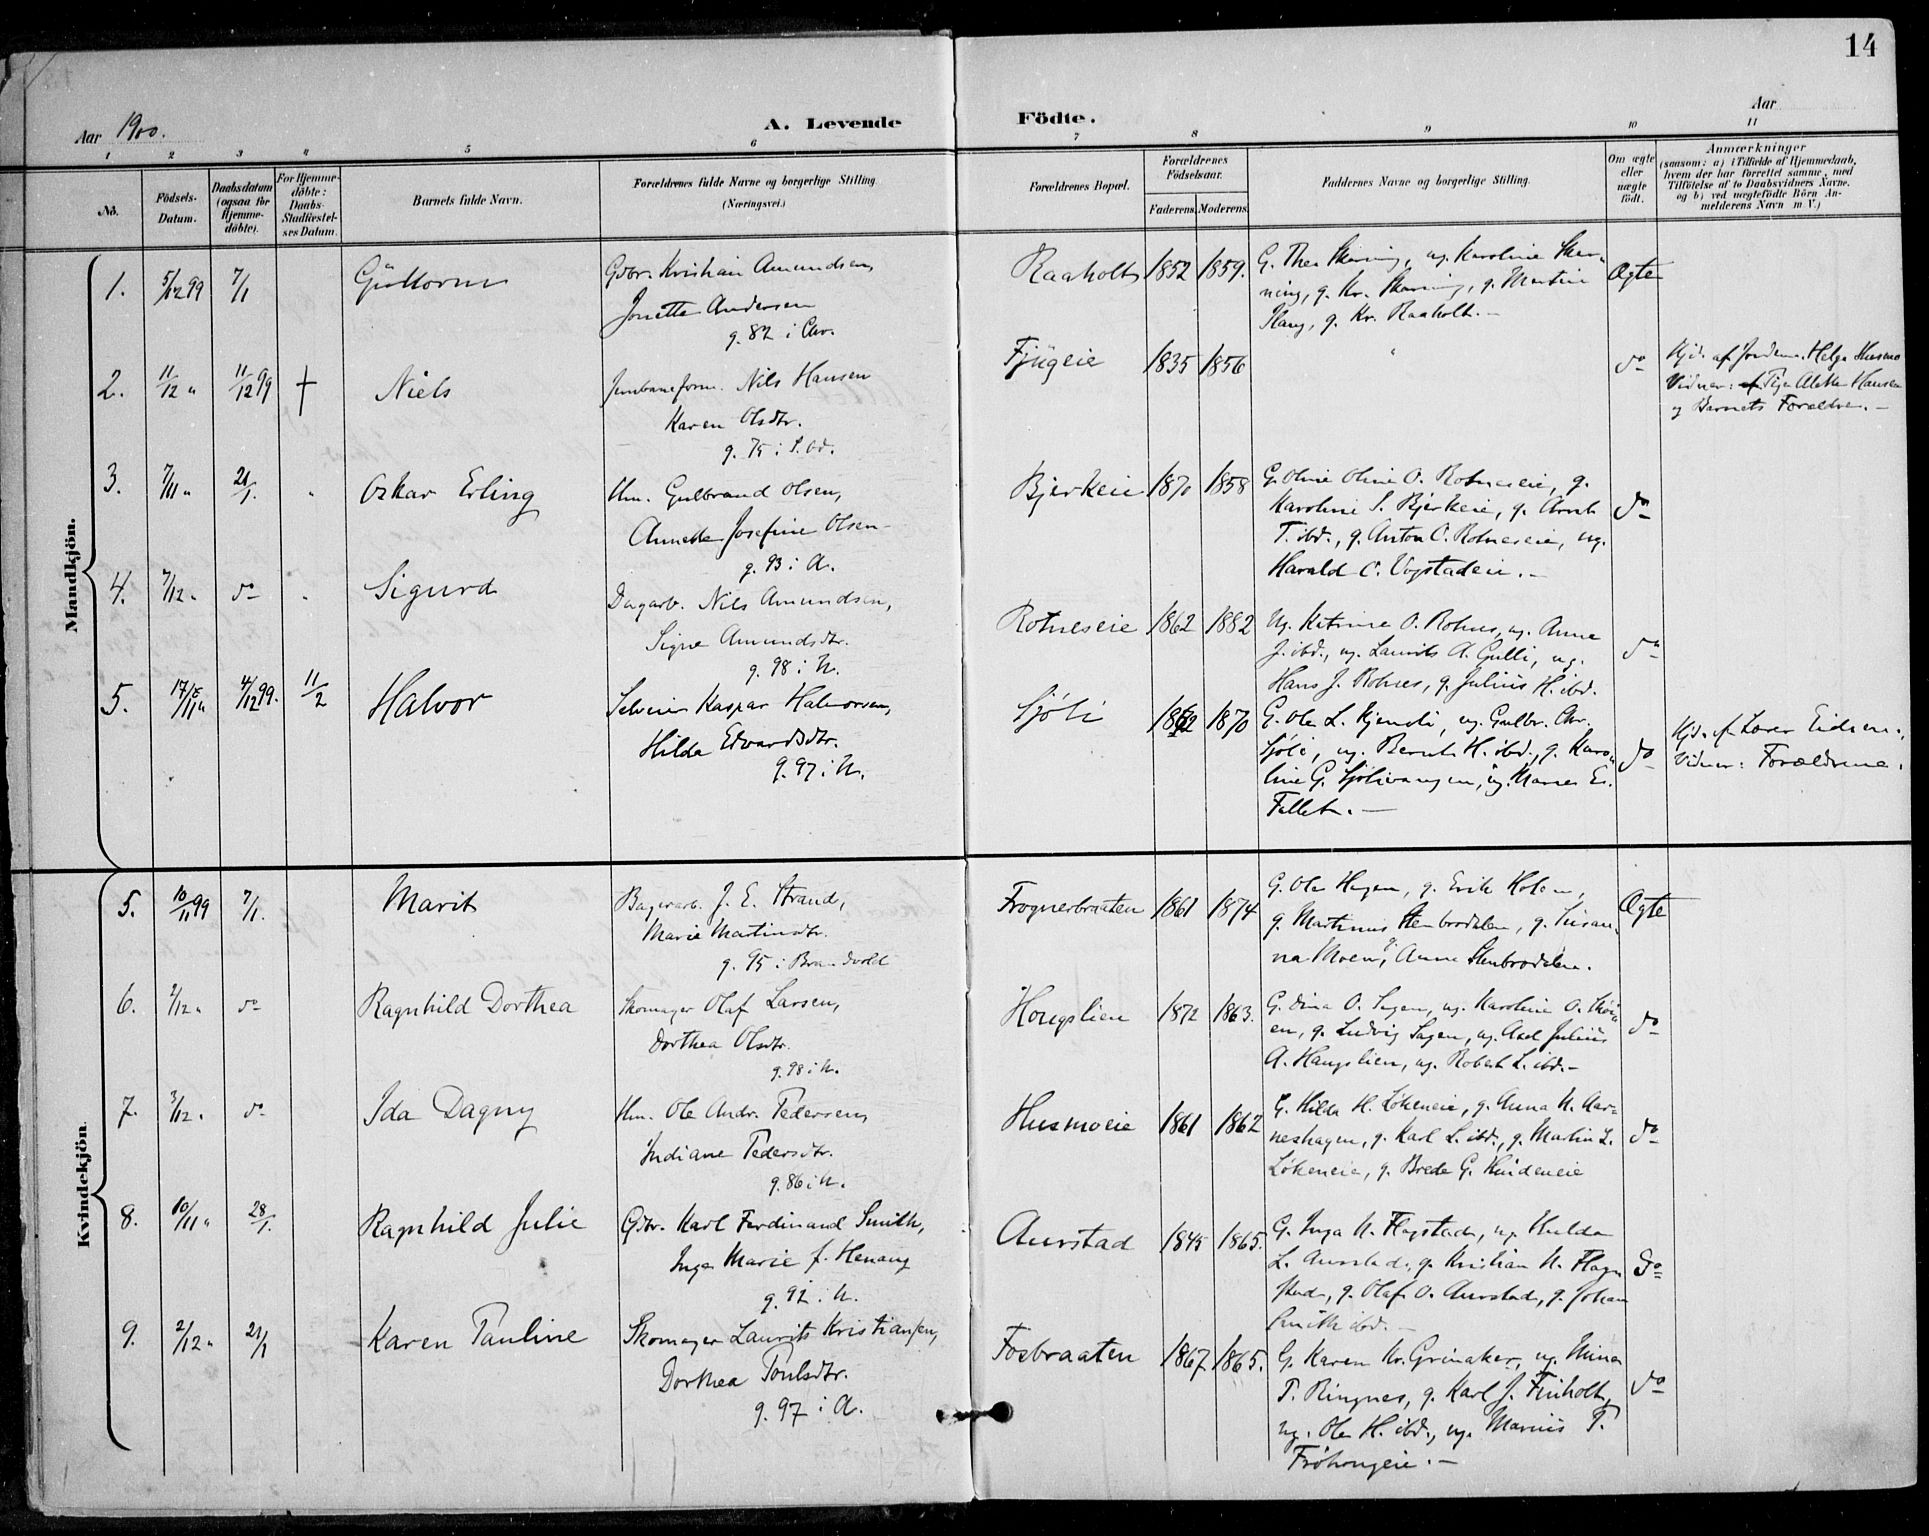 14
Aar 1900.
A. Levende
Födte.
Aar
1 2 3 4 5 6 7 8 9 10 11
No.
Födsels-
Datum.
Daabsdatum
(ogsaa for
Hjemme-
döbte).
For Hjemme-
döbte:
Daabs-
Stadfæstel-
ses Datum.
Barnets fulde Navn.
Forældrenes fulde Navne og borgerlige Stilling
(Næringsvei.)
Forældrenes Bopæl.
Forældrenes
Födselsaar.
Faderens.
Moderens.
Faddernes Navne og borgerlige Stilling.
Om ægte
eller
uægte
födt.
Anmærkninger
(saasom: a) i Tilfælde af Hjemmedaab,
hvem der har forrettet samme, med
Tilföielse af to Daabsvidners Navne.
og b) ved uægtefödte Börn An-
melderens Navn m V.)
Mandkjön.
1. 5/12 99 7/1 Guttorm
Gdbr. Kristian Amundsen,
Jonette Andersen
g. 82 i Chr.
Raaholt 1852 1859.
G. Thea Skaning, ug. Karoline Skan-
ning, g. Kr. Skaning, g. Martin
g. Kr. Raaholt.-
Ægte
2. 11/12 " 11/12 99 † Niels
Nils Hansen
Karen Olsdtr.
g. 75 i
Fjugeie 1835 1856
do
Hjd. af Jordem. Helga Husmo
Vidner: Pige Alette Hansen
og Barnets Forældre.-
3. 7/11 " 21/1. Oskar Erling
Hm. Gulbrand Olsen,
Annette Josefine Olsen
g. 93 i A.
Bjerkeie 1870 1858
G. Oline O. Rotneseie, g.
Karoline S. Bjerkeie, g. Arnt
T. ibd., g. Anton C. Rotneseie, ug.
Harald C. Vogstadeie.-
do
4. 7/12 " do Sigurd
Dagarb. Nils Amundsen,
Signe Amundsdtr.
g. 98 i N.
Rotneseie 1862 1882
Ug. Katrine O. Rotnes, ug. Anne
J. ibd., ug. Laurits A. Gulli, ug.
Hans J. Rotnes, g. Julius H. ibd.
do
5. 17/11 " 4/12 99. 11/2 Halvor
Selveier Kaspar Halvorsen,
Hilda Edvardsdtr.
g. 97 i N.
Sjöli 1862 1870
G. Ole L. Kjensli, ug. Gulbr. Chr.
Sjöli, ug. Bernt H. ibd., g. Karo-
line G. Sjölivangen, ug. Maren E.
Fallet.-
do
Hjd. af Lærer Eidsen.,
Vidner: Forældrene.
Kvindekjön
5. 10/11 99 7/1. Marit
J. E. Strand,
Marie Martinsdtr.
g. 95 i Brandvold
Frognerbraaten 1861 1874
G. Ole Hagen, g. Erik Holem,
g. Martinus Stenbrodalen, g. Susan-
na Moen, g. Anne Stenbrodalen.
Ægte
6. 2/12 " do Ragnhild Dorthea
Skomager Olaf Larsen,
Dorthea Olsdtr.
g. 98 i N.
Hougslien 1872 1863.
G. Dina O. Sagen, ug. Karoline O.
en, g. Ludvig Sagen, ug. Axel Julius
A. Haugslien, ug. Robert L. ibd.-
do
7. 3/12 " do Ida Dagny
Hm. Ole Andr. Pedersen,
Indiane Pedersdtr.
g. 86 i N.
Husmoeie 1861 1862
G. Hilda H. Lökeneie, g. Anna N. Aar-
neshagen, g. Karl L. ibd., g. Martin L.
Lökeneie, g. Brede G. Hindeneie
do
8. 10/11 " 28/1. Ragnhild Julie
Gdbr. Karl Ferdinand Smith,
Inga Marie f. Henaug
g. 92 i N.
Aurstad 1845 1865.
G. Inga N. Flagstad, ug. Hulda
L. Aurstad, g. Kristian N. Flag-
stad, g. Olaf O. Aurstad, g. Johan
Smith ibd.-
do
9. 2/12 " 21/1 Karen Pauline
Skomager Laurits Kristiansen,
Dorthea Poulsdtr.
g. 97 i A.
Fosbraaten 1867 1865.
G. Karen Kr. Grinaker, ug. Mina
T. Ringnes, g. Karl J. Finholt,
ug. Ole H. ibd., ug. Marius P.
Fröhougeie.-
do